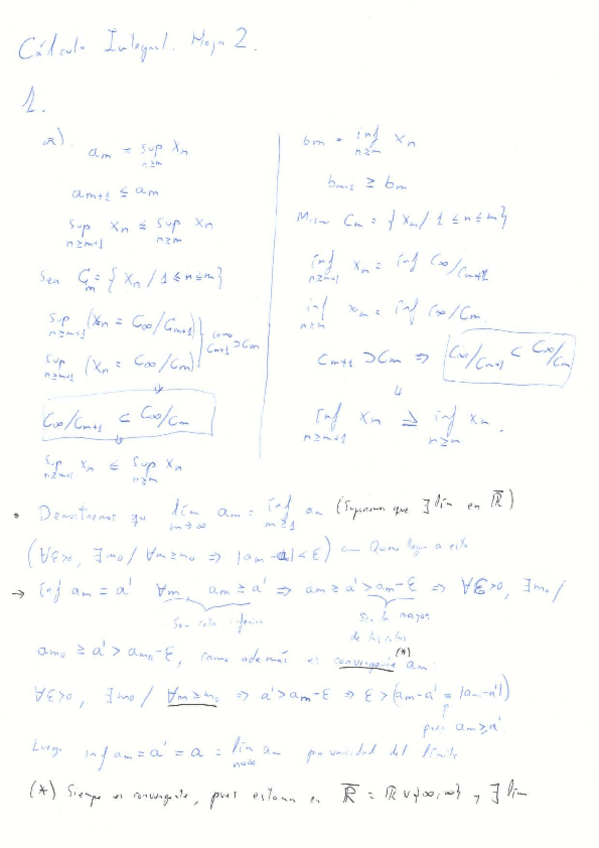 Cálculo Integral. Hoja 2.
1.
a).
a_m = sup_{n≥m} x_n
a_{m+1} ≤ a_m
sup_{n≥m+1} x_n ≤ sup_{n≥m} x_n
Sea C_m = { x_n / 1 ≤ n ≤ m }
sup_{n≥m+1} (x_n = C_∞/C_{m+1})
como C_{m+1} ⊃ C_m
sup (x_n = C_∞/C_m)
⇓
C_∞/C_{m+1} ⊂ C_∞/C_m
⇓
sup_{n≥m+1} x_n ≤ sup_{n≥m} x_n
b_m = inf_{n≥m} x_n
b_{m+1} ≥ b_m
Mismo C_m = { x_n / 1 ≤ n ≤ m }
inf_{n≥m+1} x_n = inf C_∞/C_{m+1}
inf_{n≥m} x_n = inf C_∞/C_m.
C_{m+1} ⊃ C_m ⇒ C_∞/C_{m+1} ⊂ C_∞/C_m
⇓
inf_{n≥m+1} x_n ≥ inf_{n≥m} x_n.
• Demostremos que lim_{m→∞} a_m = inf_{m≥1} a_m (Supongamos que ∃ lim en ℝ̅)
(∀ε>0, ∃m_0 / ∀m≥m_0 ⇒ |a_m - a| < ε) Quiero llegar a esto
→ inf a_m = a' ∀m, a_m ≥ a' ⇒ a_m ≥ a' > a_m - ε ⇒ ∀ε>0, ∃m_0 /
Sea cota inferior
Sea la mayor
de las cotas
a_{m_0} ≥ a' > a_{m_0} - ε, como además es convergente (*) a_m:
∀ε>0, ∃m_0 / ∀m≥m_0 ⇒ a' > a_m - ε ⇒ ε > (a_m - a' = |a_m - a'|)
↑
pues a_m ≥ a'.
Luego inf a_m = a' = a = lim_{m→∞} a_m por unicidad del límite
(*) Siempre es convergente, pues estamos en ℝ̅ = ℝ ∪ {∞, ∞} y ∃ lim